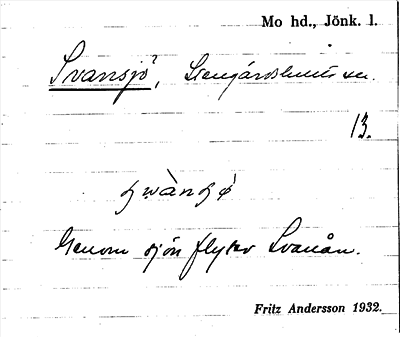 Mo hd., Jönk. l.
Svansjö?, Stengårdshults sn.
13.
Genom sjön flyter Svanån.
Fritz Andersson 1932.